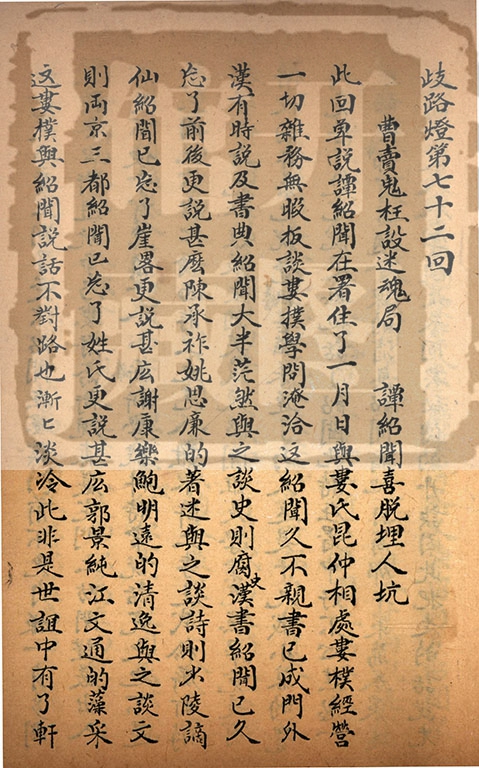 歧路燈第七十二回
曹賣鬼枉設迷魂局　譚紹聞喜脫埋人坑
此回单說譚紹聞在署住了一月日與婁氏昆仲相處婁樸經營
一切雜務無暇扳談婁樸學問淹洽這紹聞久不親書已成門外
漢有時說及書典紹聞大半茫然與之談史則腐史漢書紹聞已久
忘了前後更說甚麽陳承祚姚思廉的著述與之談詩則少陵謫
仙紹聞已忘了崖畧更說甚庅謝康樂鮑明遠的清逸與之談文
則両京三都紹聞已忘了姓氏更說甚庅郭景純江文通的藻采
这婁樸與紹聞說話不對路也漸匕淡冷此非是世誼中有了軒